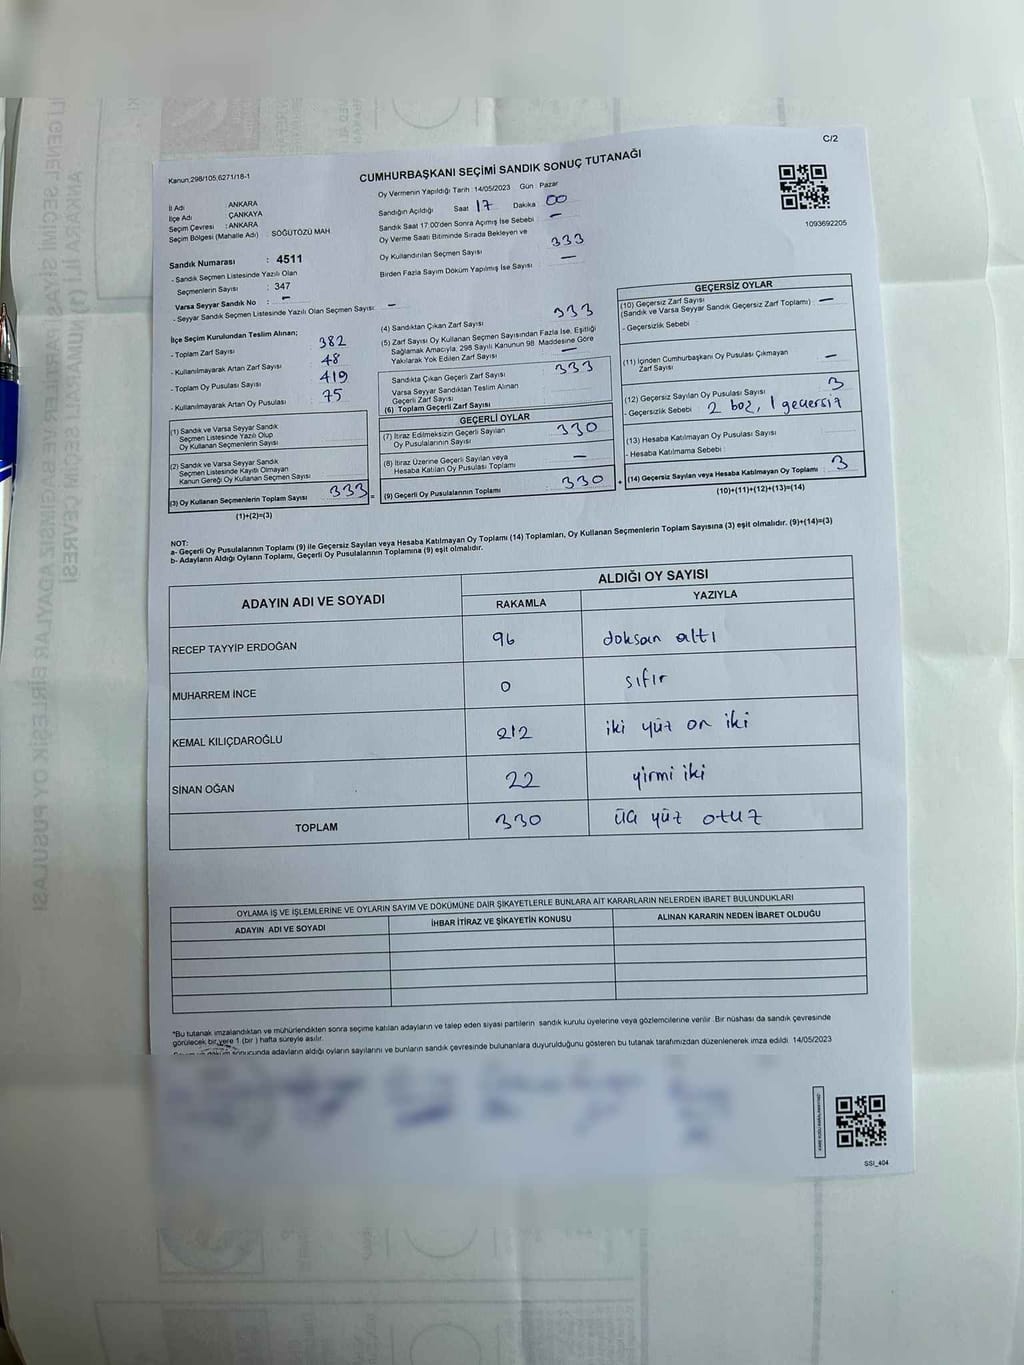 C/2
Kanun;298/105,6271/18-1
CUMHURBAŞKANI SEÇİMİ SANDIK SONUÇ TUTANAĞI
1093692205
İl Adı : ANKARA
İlçe Adı : ÇANKAYA
Seçim Çevresi : ANKARA
Seçim Bölgesi (Mahalle Adı) : SÖĞÜTÖZÜ MAH.
Sandık Numarası : 4511
- Sandık Seçmen Listesinde Yazılı Olan
Seçmenlerin Sayısı : 347
Varsa Seyyar Sandık No : -
- Seyyar Sandık Seçmen Listesinde Yazılı Olan Seçmen Sayısı: -
Oy Vermenin Yapıldığı Tarih :14/05/2023 Gün : Pazar
Sandığın Açıldığı Saat 17 Dakika 00
Sandık Saat 17:00'den Sonra Açımış İse Sebebi -
Oy Verme Saati Bitiminde Sırada Bekleyen ve
Oy Kullandırılan Seçmen Sayısı 333
Birden Fazla Sayım Döküm Yapılmış İse Sayısı -
İlçe Seçim Kurulundan Teslim Alınan;
- Toplam Zarf Sayısı 382
- Kullanılmayarak Artan Zarf Sayısı 48
- Toplam Oy Pusulası Sayısı 419
- Kullanılmayarak Artan Oy Pusulası 75
(1) Sandık ve Varsa Seyyar Sandık
Seçmen Listesinde Yazılı Olup
Oy Kullanan Seçmenlerin Sayısı
(2) Sandık ve Varsa Seyyar Sandık
Seçmen Listesinde Kayıtlı Olmayan
Kanun Gereği Oy Kullanan Seçmen Sayısı
(3) Oy Kullanan Seçmenlerin Toplam Sayısı 333 =
(1)+(2)=(3)
(4) Sandıktan Çıkan Zarf Sayısı 333
(5) Zarf Sayısı Oy Kullanan Seçmen Sayısından Fazla İse, Eşitliği
Sağlamak Amacıyla, 298 Sayılı Kanunun 98. Maddesine Göre
Yakılarak Yok Edilen Zarf Sayısı -
Sandıkta Çıkan Geçerli Zarf Sayısı 333
Varsa Seyyar Sandıktan Teslim Alınan
Geçerli Zarf Sayısı
(6) Toplam Geçerli Zarf Sayısı
GEÇERLİ OYLAR
(7) İtiraz Edilmeksizin Geçerli Sayılan
Oy Pusulalarının Sayısı 330
(8) İtiraz Üzerine Geçerli Sayılan veya
Hesaba Katılan Oy Pusulası Toplamı -
(9) Geçerli Oy Pusulalarının Toplamı 330 +
GEÇERSİZ OYLAR
(10) Geçersiz Zarf Sayısı
(Sandık ve Varsa Seyyar Sandık Geçersiz Zarf Toplamı) : -
- Geçersizlik Sebebi
(11) İçinden Cumhurbaşkanı Oy Pusulası Çıkmayan
Zarf Sayısı -
(12) Geçersiz Sayılan Oy Pusulası Sayısı 3
- Geçersizlik Sebebi : 2 boz, 1 geçersiz
(13) Hesaba Katılmayan Oy Pusulası Sayısı
- Hesaba Katılmama Sebebi :
(14) Geçersiz Sayılan veya Hesaba Katılmayan Oy Toplamı : 3
(10)+(11)+(12)+(13)=(14)
NOT:
a- Geçerli Oy Pusulalarının Toplamı (9) ile Geçersiz Sayılan veya Hesaba Katılmayan Oy Toplamı (14) Toplamları, Oy Kullanan Seçmenlerin Toplam Sayısına (3) eşit olmalıdır. (9)+(14)=(3)
b- Adayların Aldığı Oyların Toplamı, Geçerli Oy Pusulalarının Toplamına (9) eşit olmalıdır.
ADAYIN ADI VE SOYADI ALDIĞI OY SAYISI
RAKAMLA YAZIYLA
RECEP TAYYİP ERDOĞAN 96 doksan altı
MUHARREM İNCE 0 sıfır
KEMAL KILIÇDAROĞLU 212 iki yüz on iki
SİNAN OĞAN 22 yirmi iki
TOPLAM 330 üç yüz otuz
OYLAMA İŞ VE İŞLEMLERİNE VE OYLARIN SAYIM VE DÖKÜMÜNE DAİR ŞİKAYETLERLE BUNLARA AİT KARARLARIN NELERDEN İBARET BULUNDUKLARI
ADAYIN ADI VE SOYADI İHBAR İTİRAZ VE ŞİKAYETİN KONUSU ALINAN KARARIN NEDEN İBARET OLDUĞU
*Bu tutanak imzalandıktan ve mühürlendikten sonra seçime katılan adayların ve talep eden siyasi partilerin sandık kurulu üyelerine veya gözlemcilerine verilir. Bir nüshası da sandık çevresinde
görülecek bir yere 1 (bir ) hafta süreyle asılır.
sonucunda adayların aldığı oyların sayılarını ve bunların sandık çevresinde bulunanlara duyurulduğunu gösteren bu tutanak tarafımızdan düzenlenerek imza edildi. 14/05/2023
SSI_404